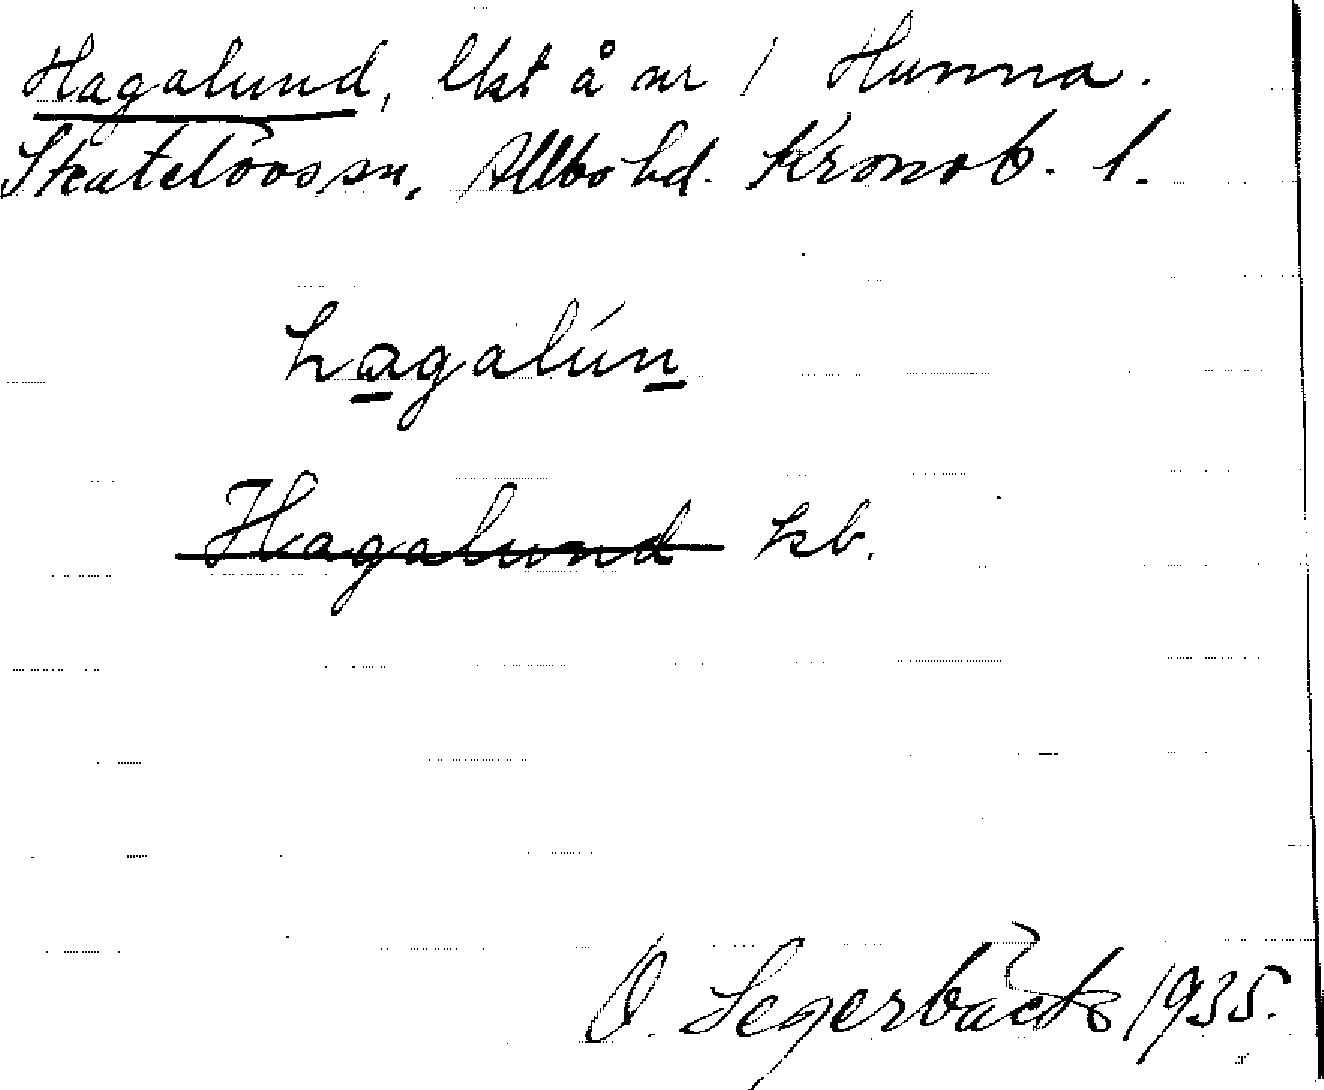 Hagalund, lht å nr 1 Hunna.
Skatelövs sn, Allbo hd. Kronob. l.
hagalún
Hagalund kb.
O. Segerbäck 1935.